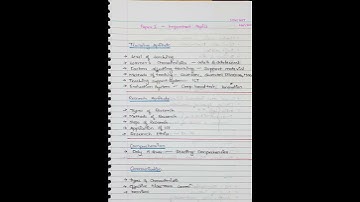 Paper I - Important Topics
Teaching Aptitude
→ Level of teaching
→ Learner's Characteristics - Adult & Adolescent
→ Factors affecting teaching - Support material
→ Methods of teaching -
→ Teaching Support System - ICT
→ Evaluation System - Comp. based test, Innovation
Research Aptitude
→ Types of Research
→ Methods of Research
→ Steps of Research
→ Application of ICT
→ Research Ethics
Comprehension
→ Reading Comprehension
Communication
→ Types & Characteristics
→ Effective Classroom
→ Barriers